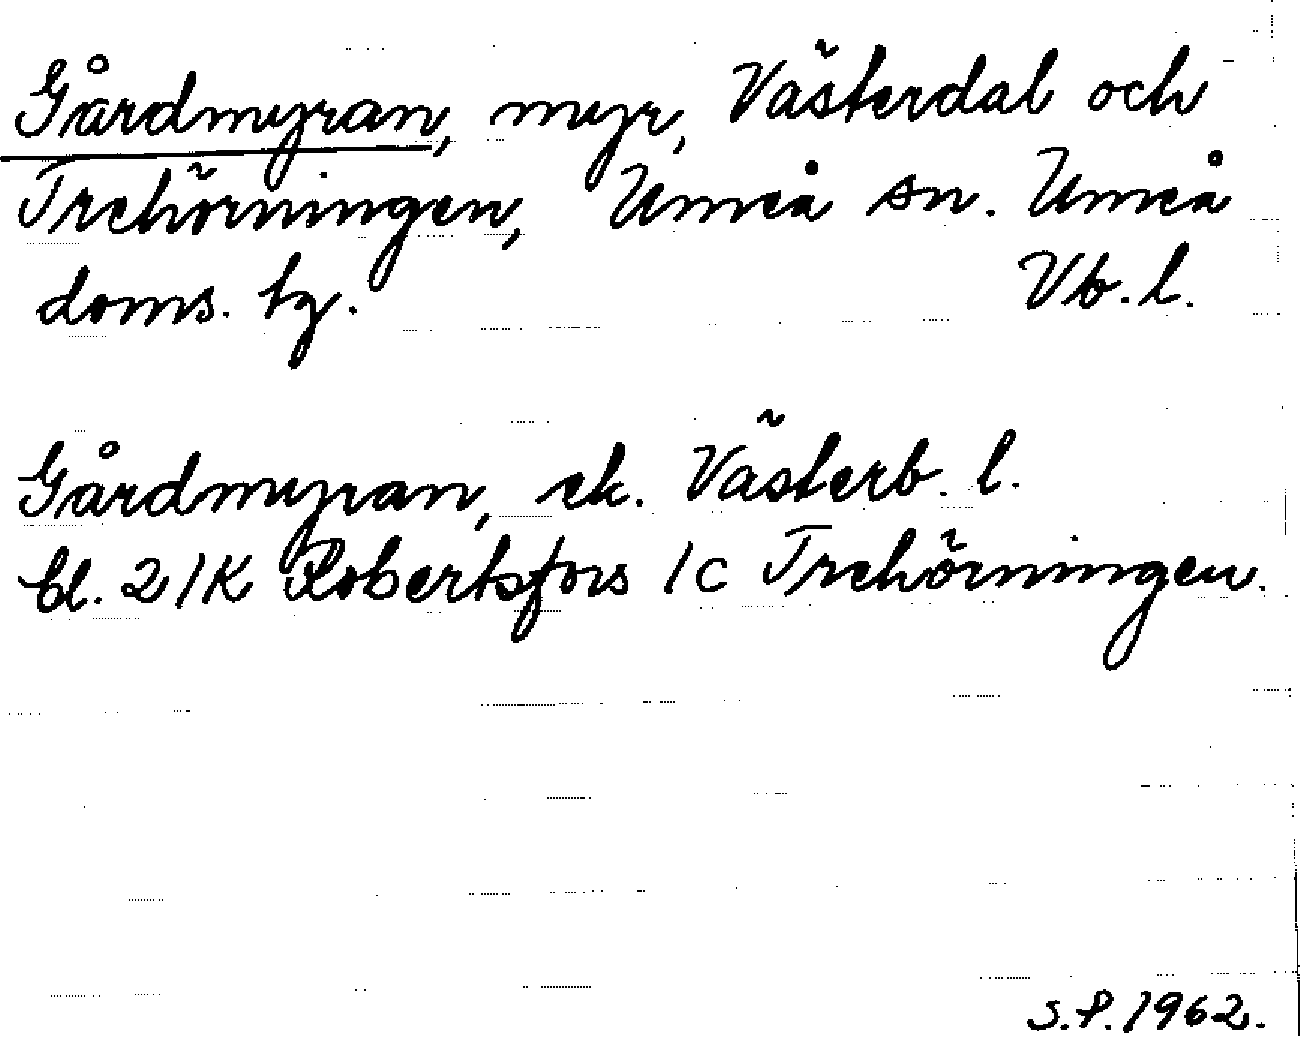 Gårdmyran, myr, Västerdal och
Trehörningen, Umeå sn. Umeå
doms. tg. Vb. l.
Gårdmyran, ek. Västerb. l.
bl. 21K Robertsfors 1c Trehörningen.
S.P. 1962.